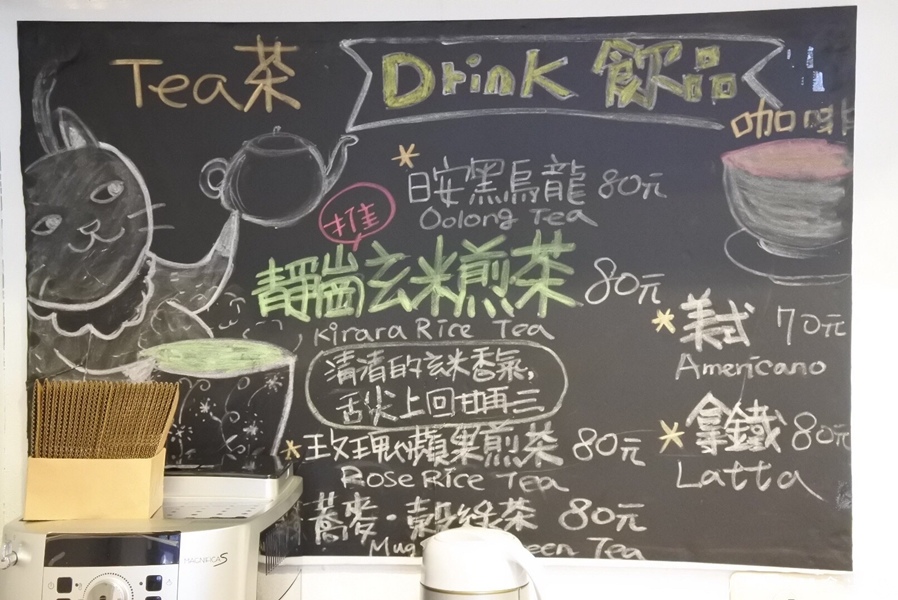 Tea茶
Drink 飲品
日安黑烏龍 80元
Oolong Tea
推
靜崗玄米煎茶 80元
Kirara Rice Tea
清清的玄米香氣,
舌尖上回甘再三
玫瑰蘋果煎茶 80元
Rose Rice Tea
蕎麥·穀綠茶 80元
Tea
咖啡
美式 70元
Americano
拿鐵 80元
Latta
MAGNIFICA S